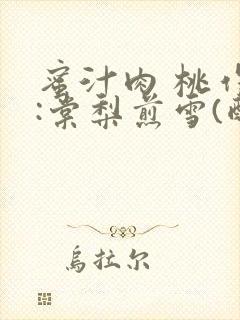 蜜汁肉桃作
:棠梨煎雪(醉
烏拉尔